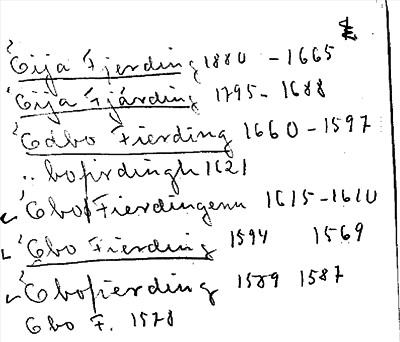 Eija Fjerding 1880 - 1665
Eija Fjärding 1795 - 1688
Edbo Fierding 1660 - 1597
" bofirdingh 1621
Ebo Fierdingenn 1615 - 1610
Ebo Fierding 1594 1569
Ebofierding 1589 1587
Ebo F. 1578